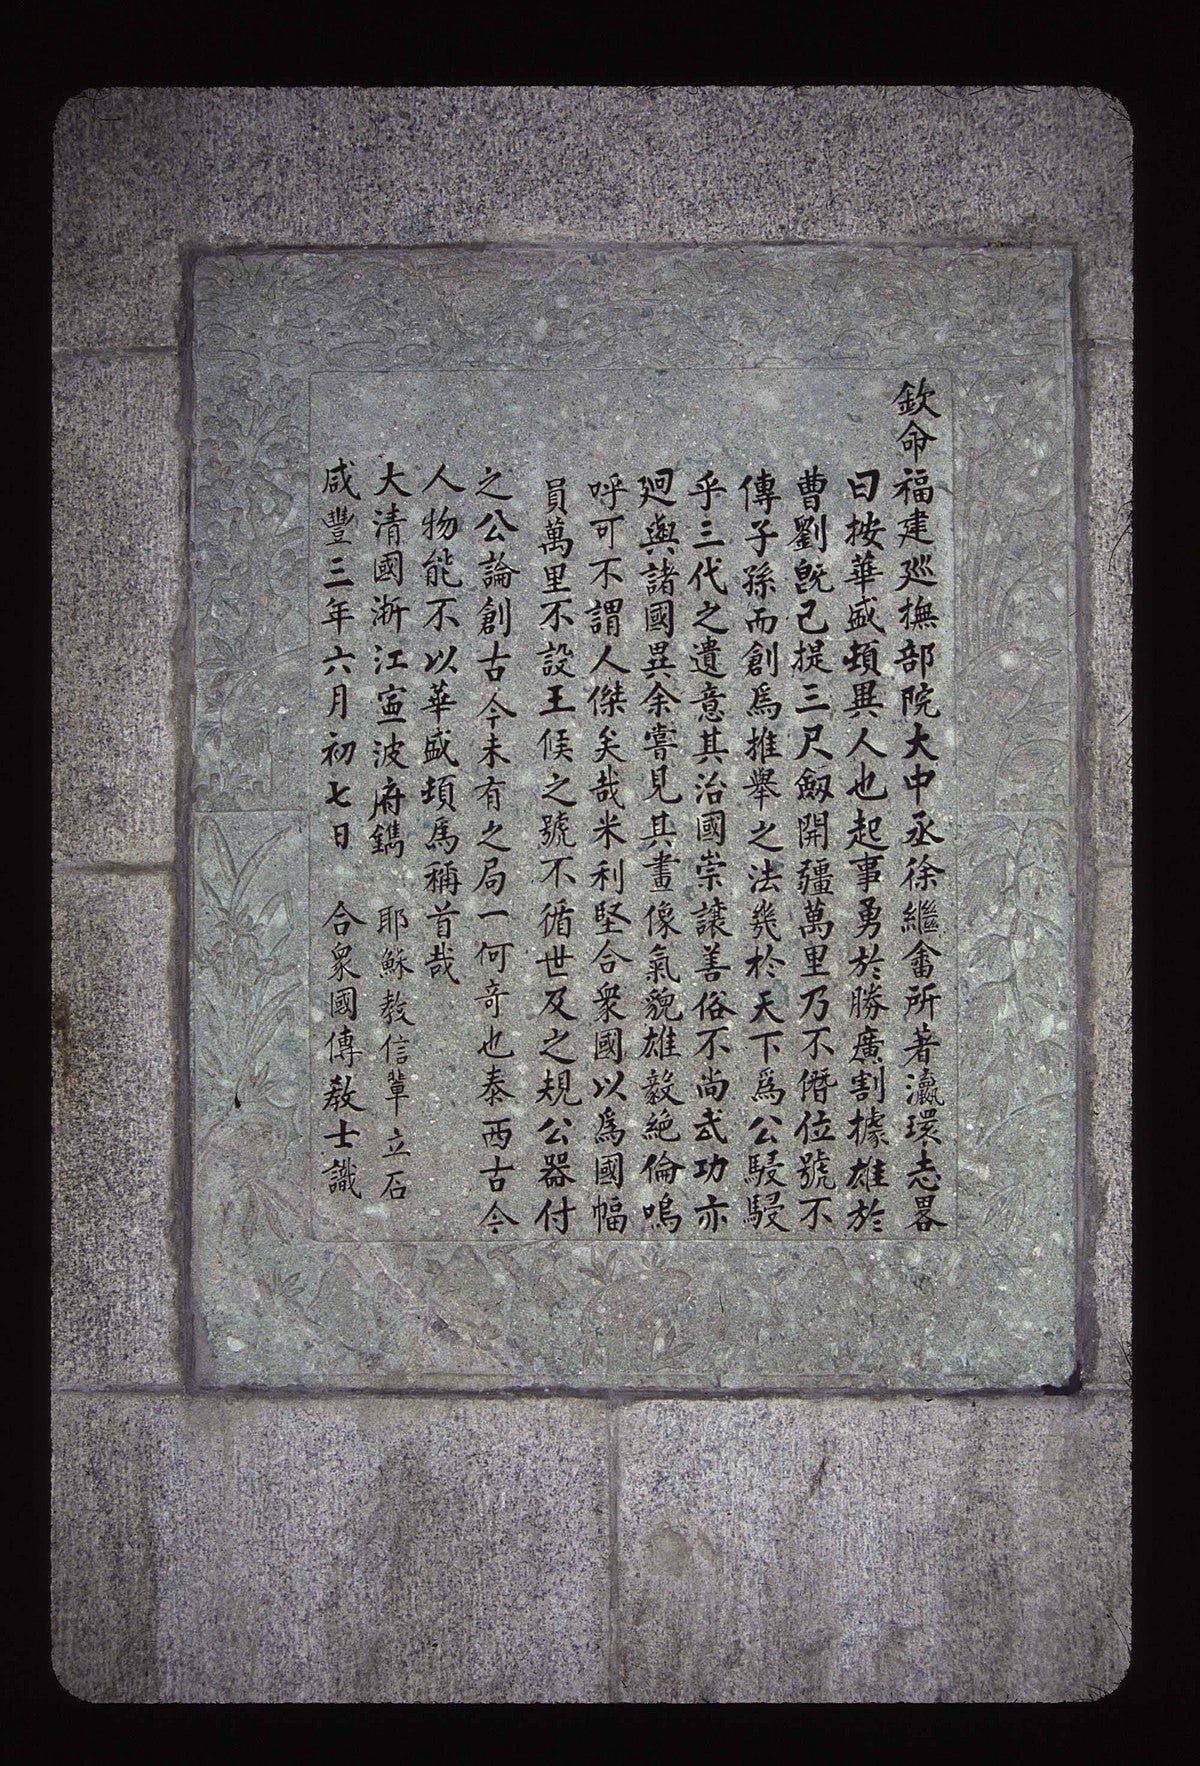 欽命福建巡撫部院大中丞徐繼畬所著瀛環志畧
曰按華盛頓異人也起事勇於勝廣割據雄於
曹劉既已提三尺劔開疆萬里乃不僭位號不
傳子孫而創爲推舉之法幾於天下爲公駸駸
乎三代之遺意其治國崇讓善俗不尚武功亦
迥與諸國異余嘗見其畫像氣貌雄毅絕倫嗚
呼可不謂人傑矣哉米利堅合衆國以爲國幅
員萬里不設王侯之號不循世及之規公器付
之公論創古今未有之局一何奇也泰西古今
人物能不以華盛頓爲稱首哉
大清國浙江寧波府鐫 耶穌教信輩 立石
咸豐三年六月初七日 合衆國傳教士識